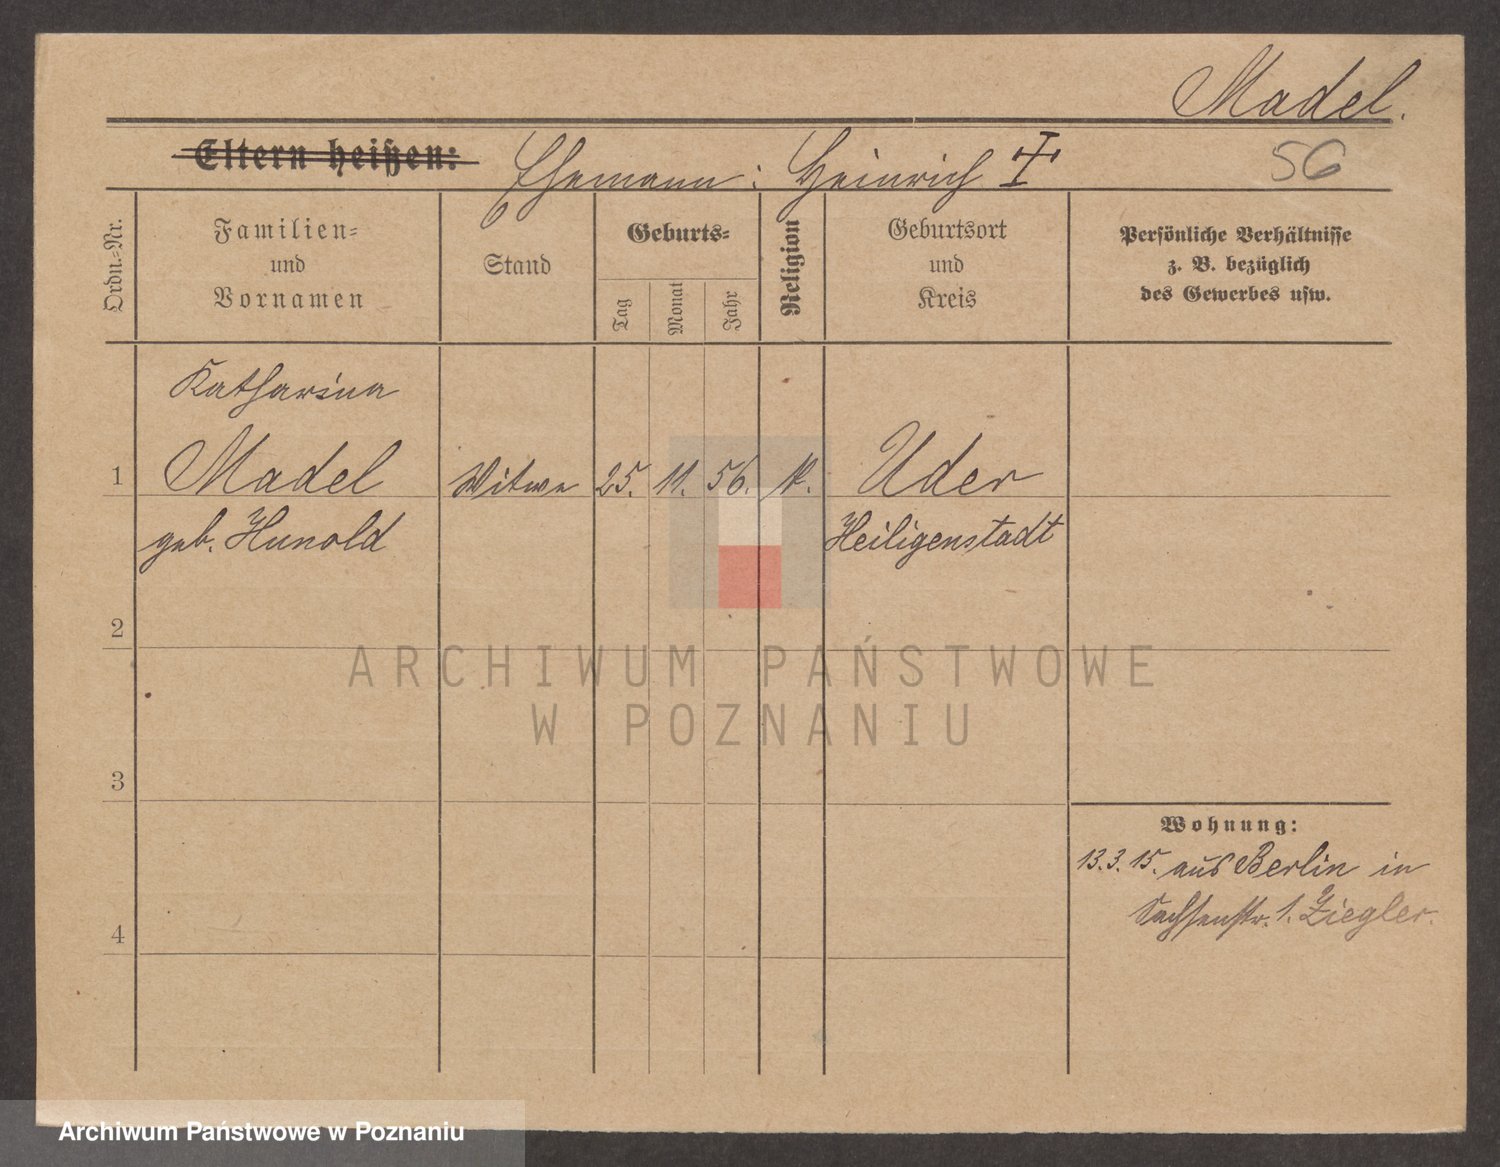 Madel.
Eltern heißen: Ehemann: Heinrich
56
Ordn.-Nr.
Familien-
und
Vornamen
Stand
Geburts-
Tag
Monat
Jahr
Religion
Geburtsort
und
Kreis
Persönliche Verhältnisse
z. B. bezüglich
des Gewerbes usw.
Katharina
1 Madel Witwe 25. 11. 56. k. Uder
geb. Hunold Heiligenstadt
2
ARCHIWUM PAŃSTWOWE
W POZNANIU
3
Wohnung:
13.3.15. aus Berlin in
Sachsenstr. 1. Ziegler.
4
Archiwum Państwowe w Poznaniu